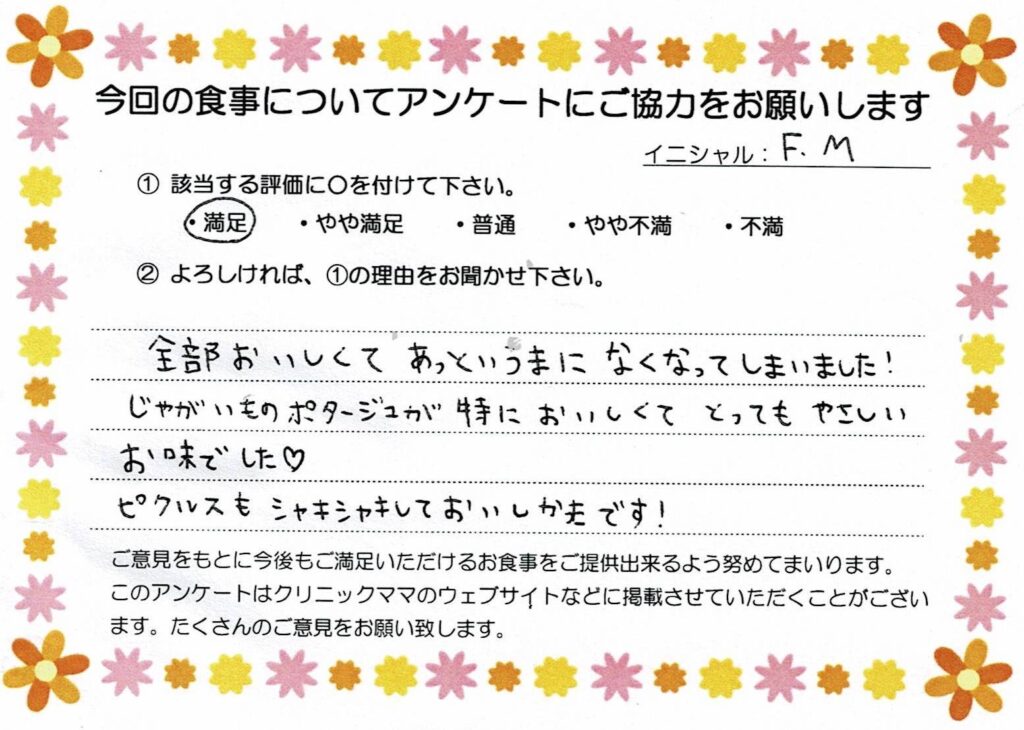 今回の食事についてアンケートにご協力をお願いします
イニシャル：F. M
① 該当する評価に〇を付けて下さい。
・満足　・やや満足　・普通　・やや不満　・不満
② よろしければ、①の理由をお聞かせ下さい。
全部おいしくて あっというまに なくなってしまいました！
じゃがいものポタージュが 特に おいしくて とっても やさしい
お味でした♡
ピクルスも シャキシャキしておいしかたです！
ご意見をもとに今後もご満足いただけるお食事をご提供出来るよう努めてまいります。
このアンケートはクリニックママのウェブサイトなどに掲載させていただくことがござい
ます。たくさんのご意見をお願い致します。